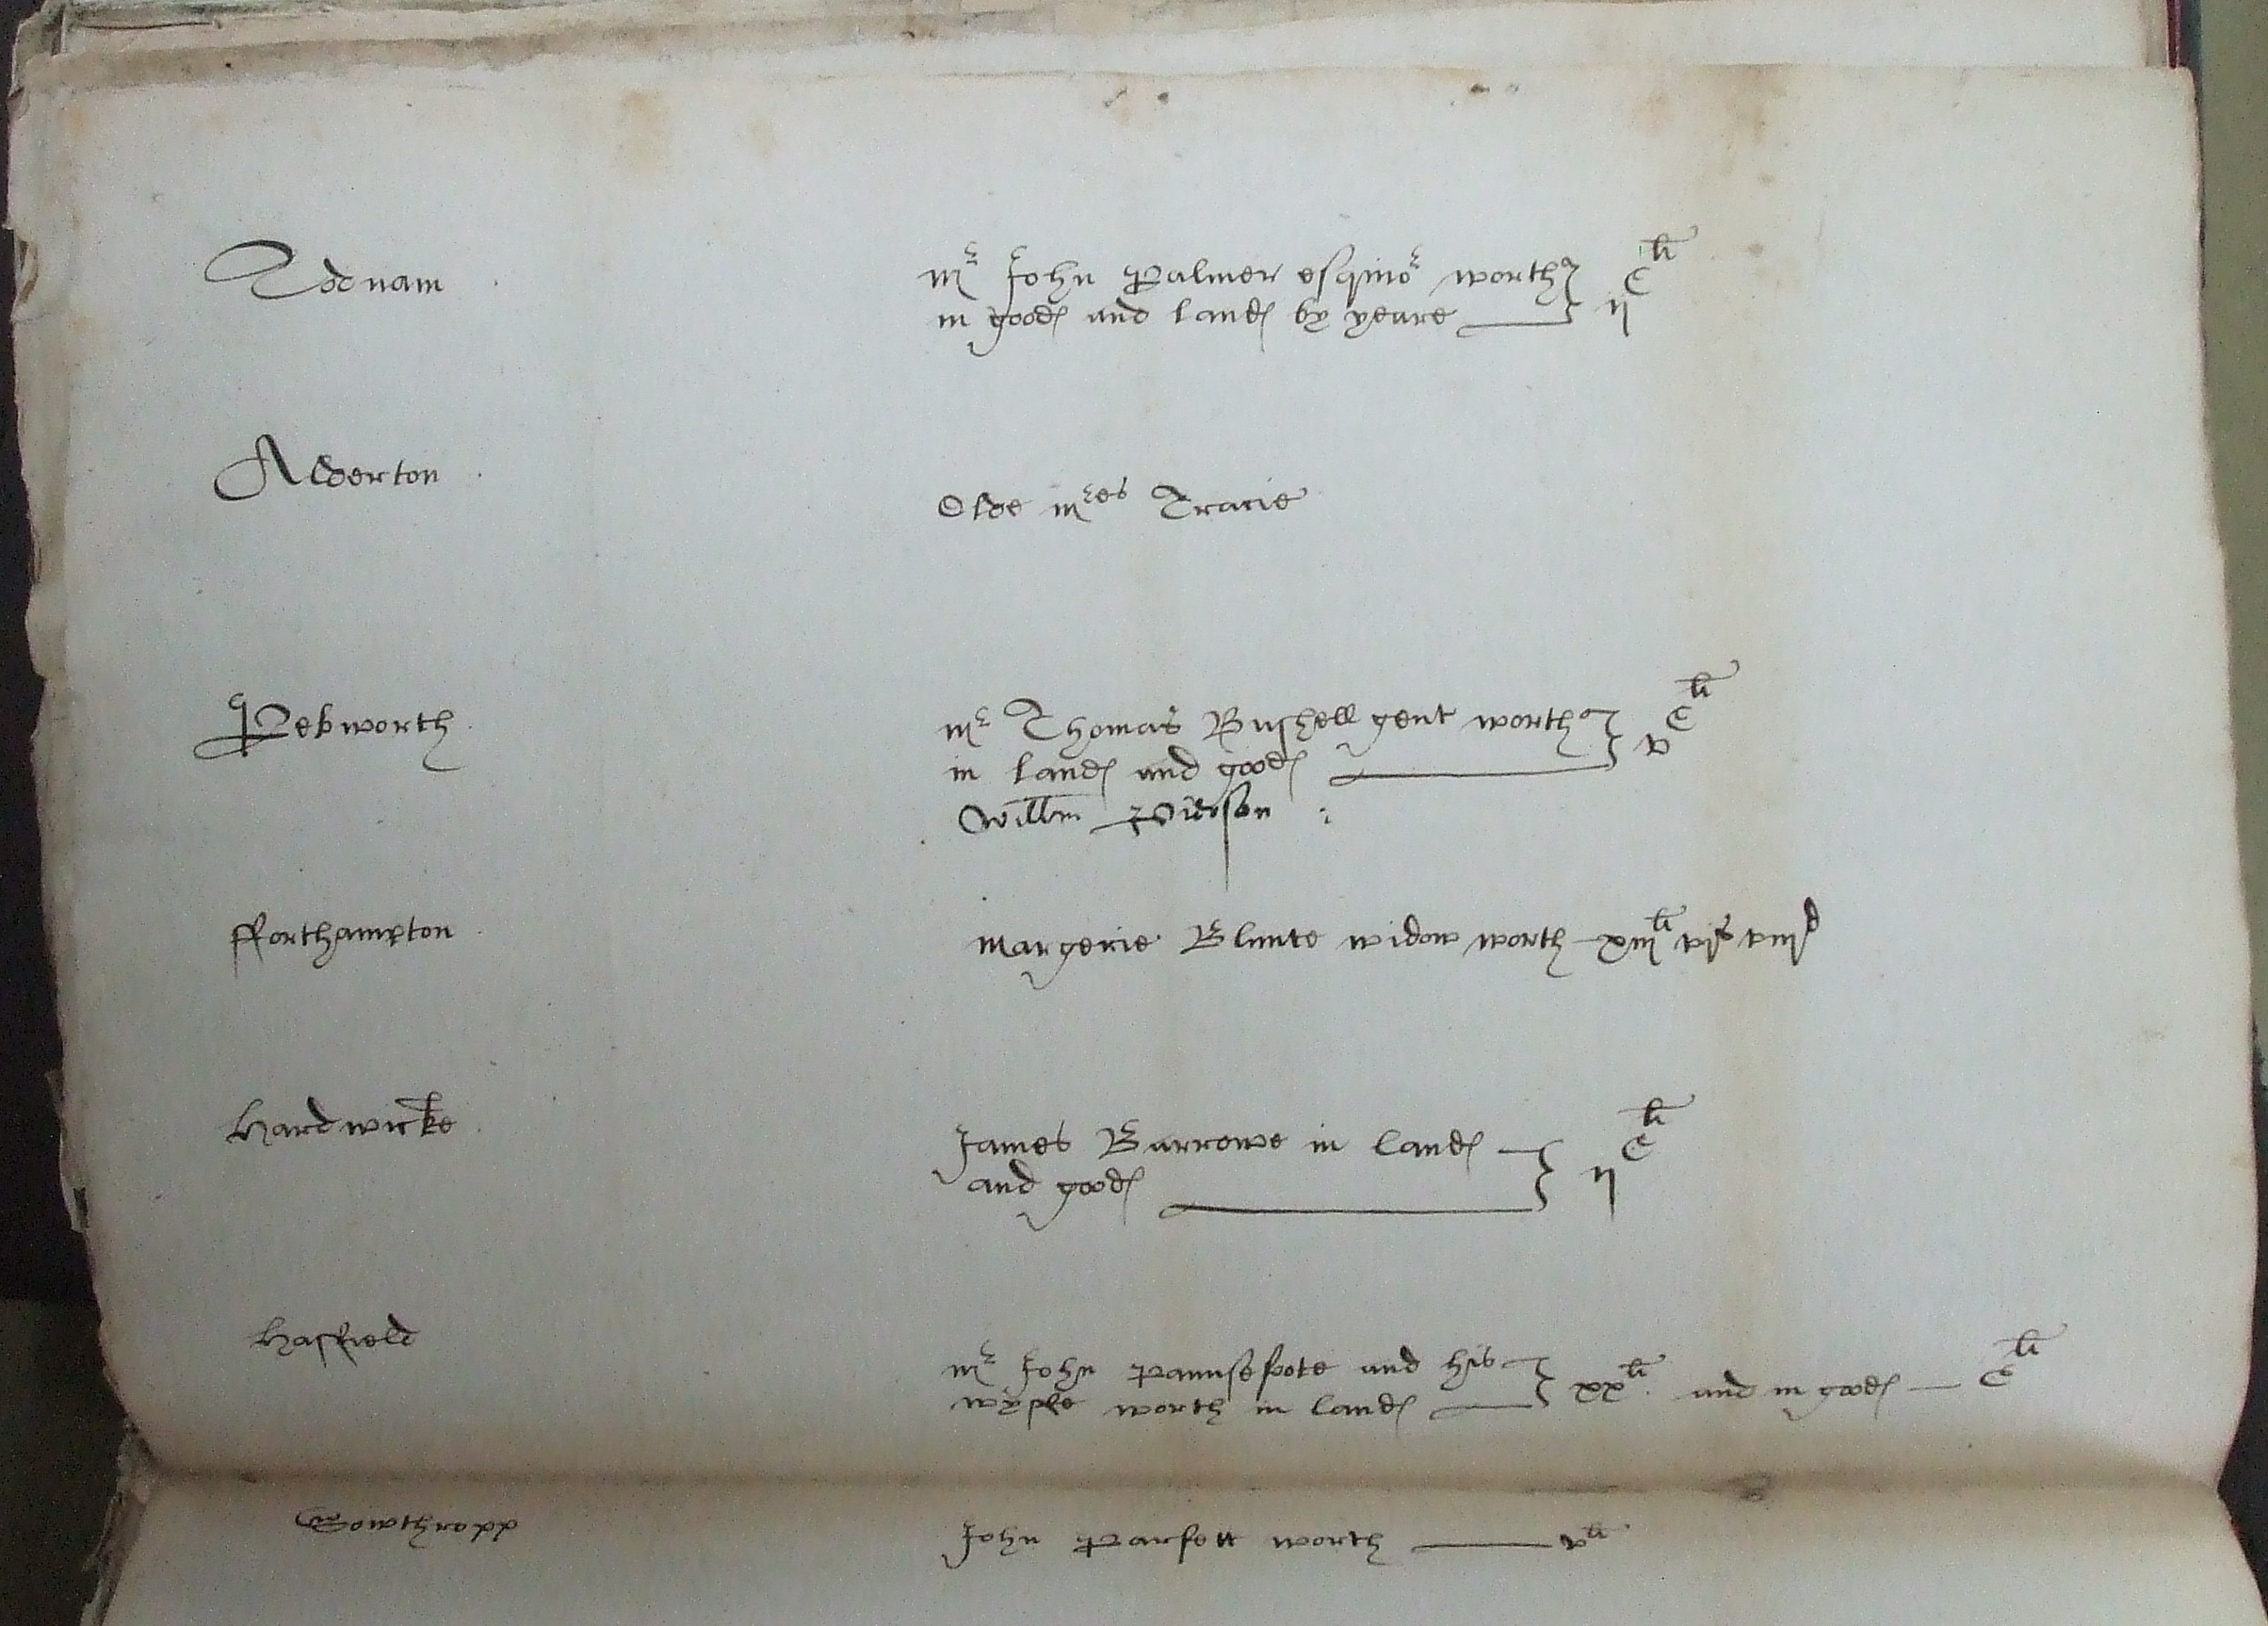 Todnam
mr John Palmer esquior worth
in goodes and landes by yeare ijC li
Alderton
Olde mres Tracie
Pebworth
mr Thomas Bushell gent worth
in landes and goodes vC li
Willm Pierson
fforthampton
Margerie Blunte widow worth xiijli vjs viijd
Hardwicke
James Barrowe in landes
and goodes ijC li
Hasfield
mr John Paunsefote and his
wyffe worth in landes xxli and in goodes C li
Sowthropp
John Parfett worth vli